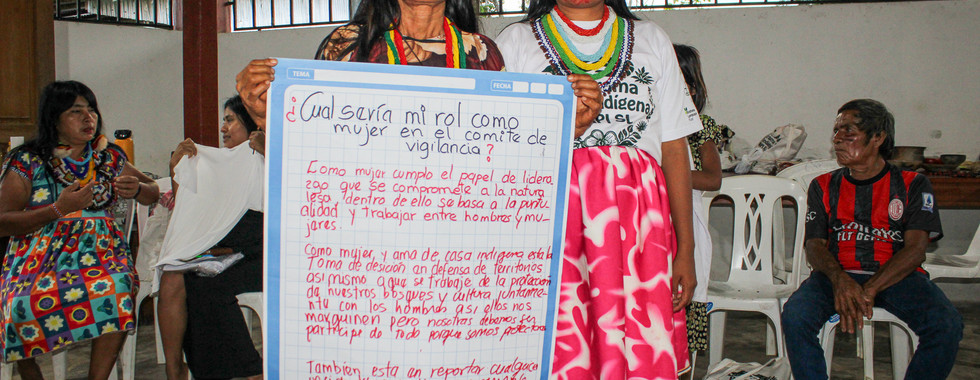 TEMA
FECHA
¿ Cual saría mi rol como
mujer en el comite de
vigilancia?
Como mujer cumplo el papel de lidera
zgo que se compromete a la natura
leza, dentro de ello se basa a la puntu
alidad y trabajar entre hombres y mu
jares.
Como mujer, y ama de casa indigena esta la
Toma de desición an defensa de territorios
asi mismo a que se trabaje de la protección
da nuestros bosques y cultura juntame
nte con los hombras asi ellos nos
maxquinen pero nosotras debemos ser
participe de todo porque somos protectoras
Tambien esta an reportar cualquier
ma
indigena
PI SL